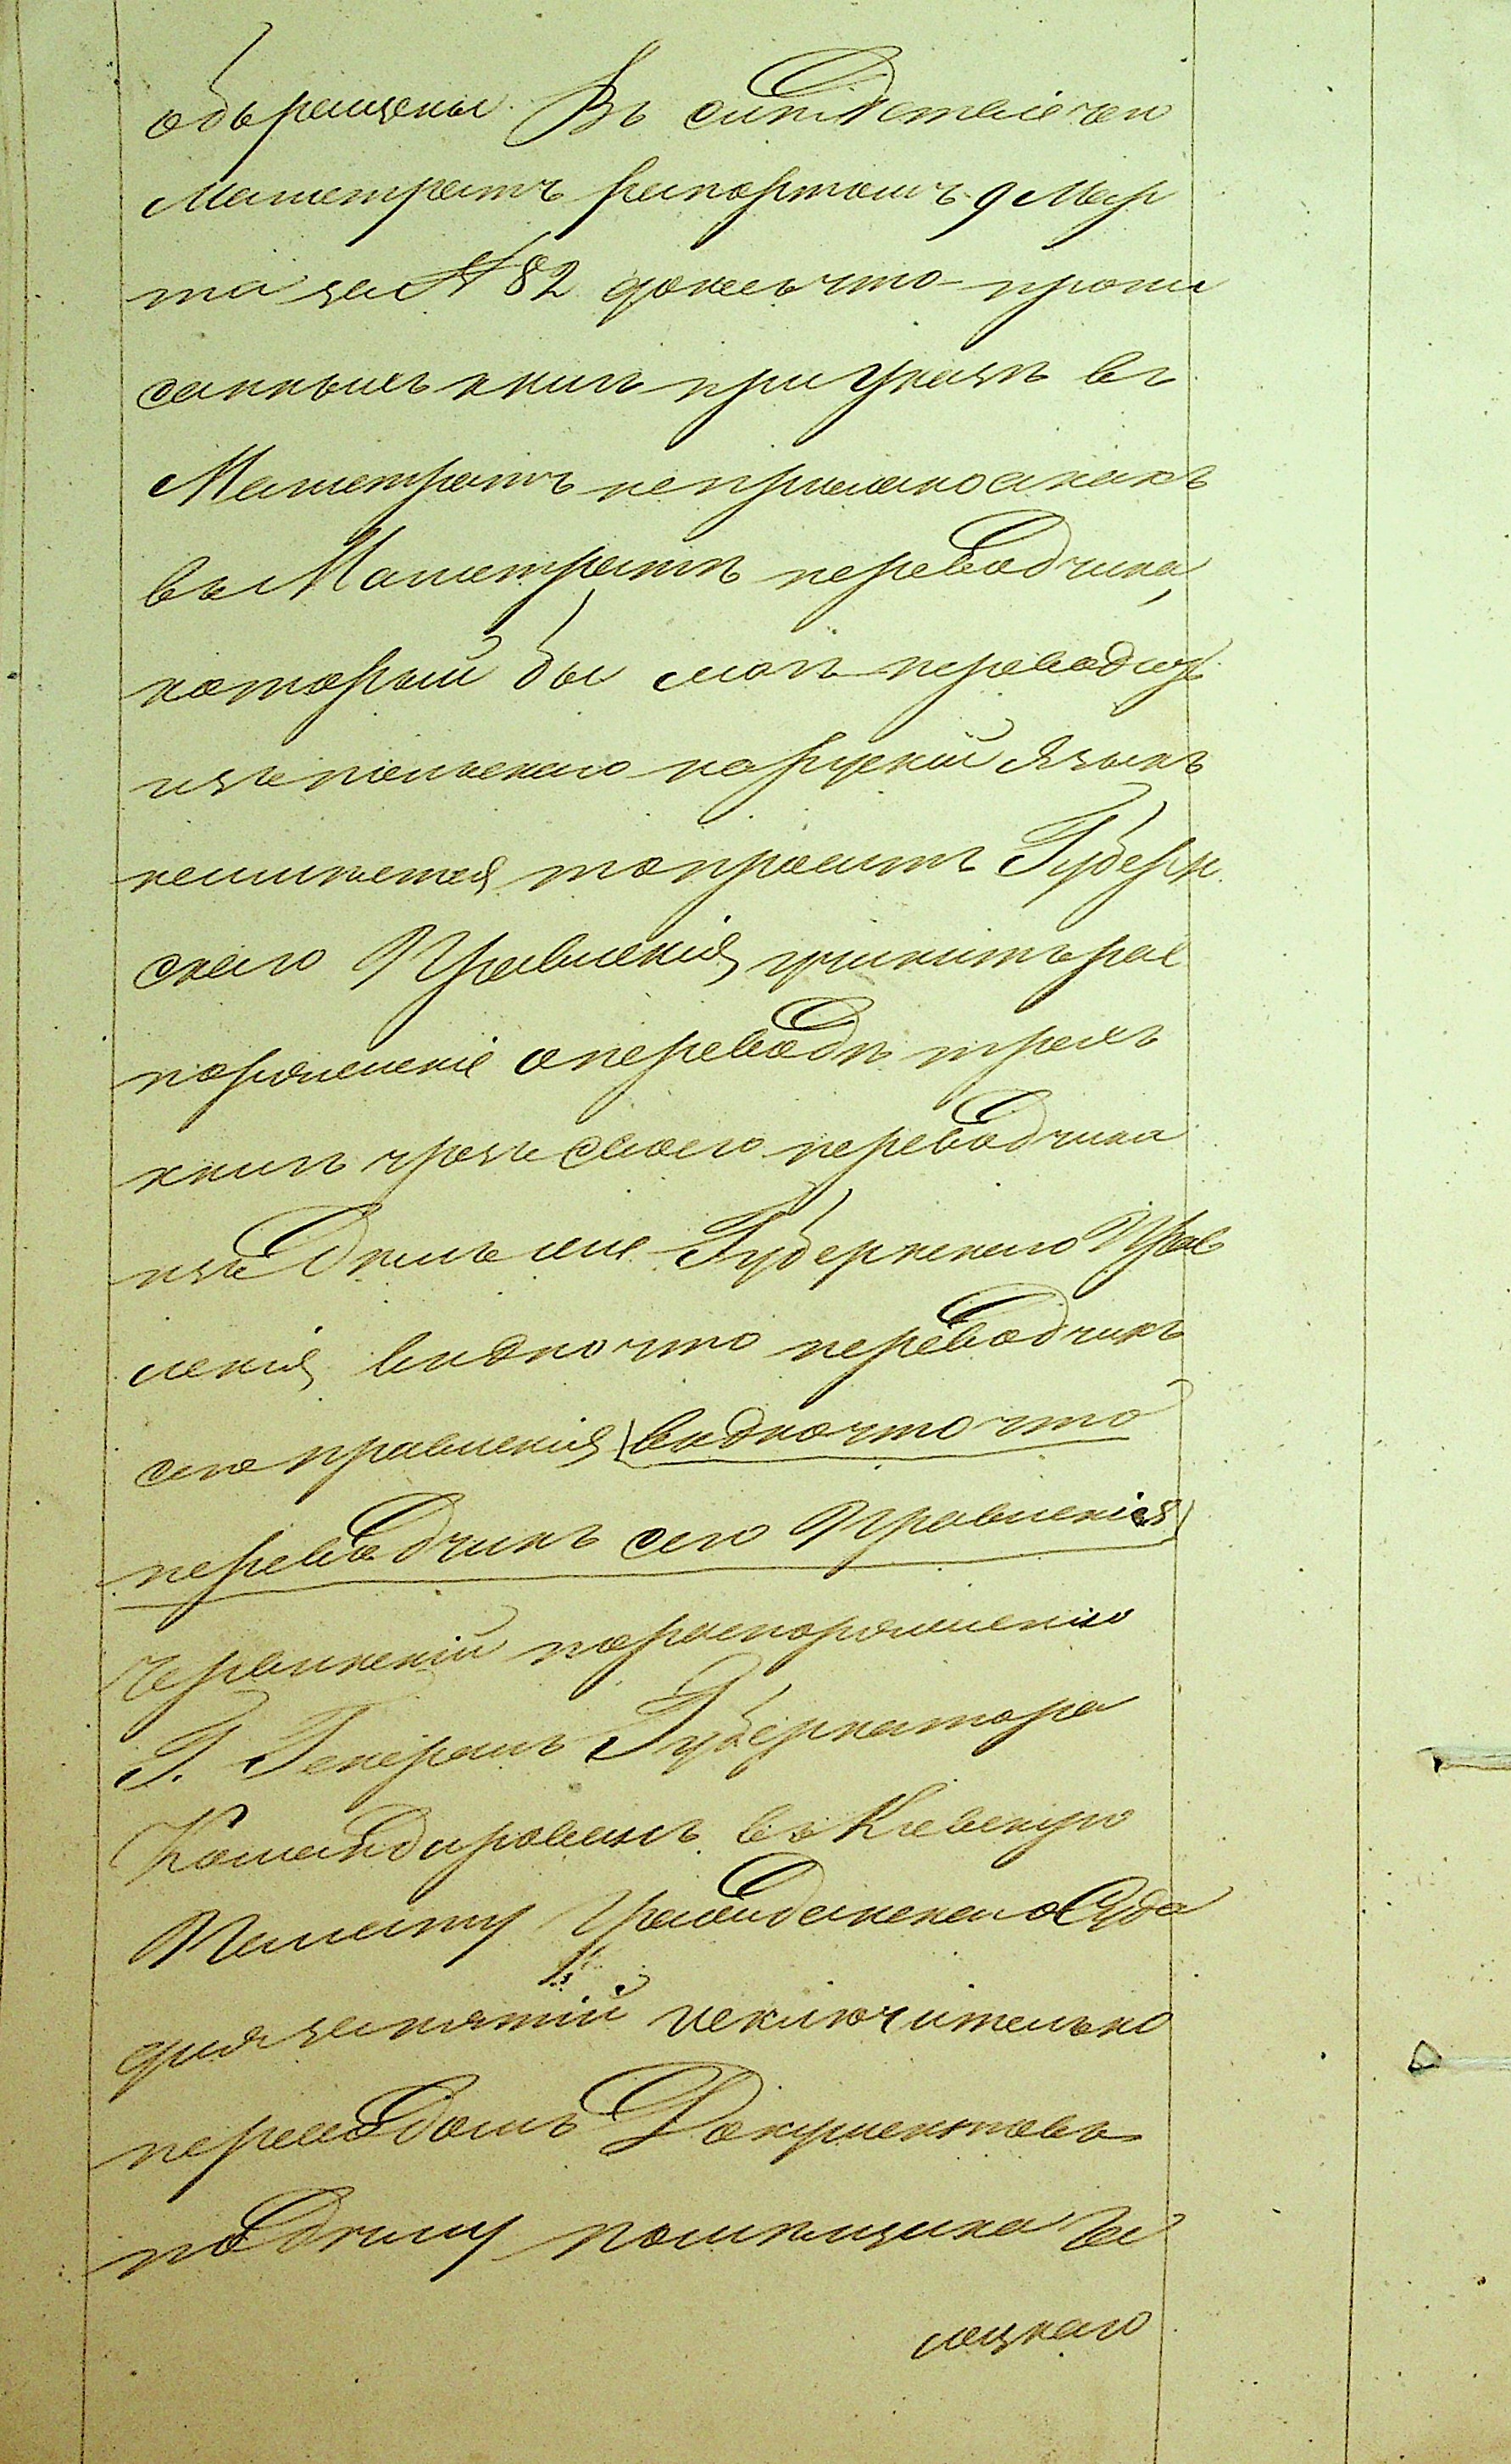 объращены. Въ слѣдствіе чего
Магистратъ рапортомъ 9 Мар
та за № 82 донесъ что – пропи
санныхъ книгъ при Указѣ въ
Магистратъ неприслано а какъ
въ Магистратѣ переводчика,
который бы могъ переводить
изъ польскаго на рускій языкъ
неимѣется, то проситъ Губерн
скаго Правленія учинить рас
поряженіе о переводѣ трехъ
книгъ чрезъ своего переводчика
изъ Дѣлъ же Губернскаго Прав
ленія видно что переводчикъ
сего правленія (видно что что
переводчикъ сего Правленія)
по распоряженію
Г. Генералъ Губернатора
Командированъ въ Кіевскую
Палату Гражданскаго Суда
для занятій исключительно
переводомъ Документовъ
по Дѣлу помѣщика